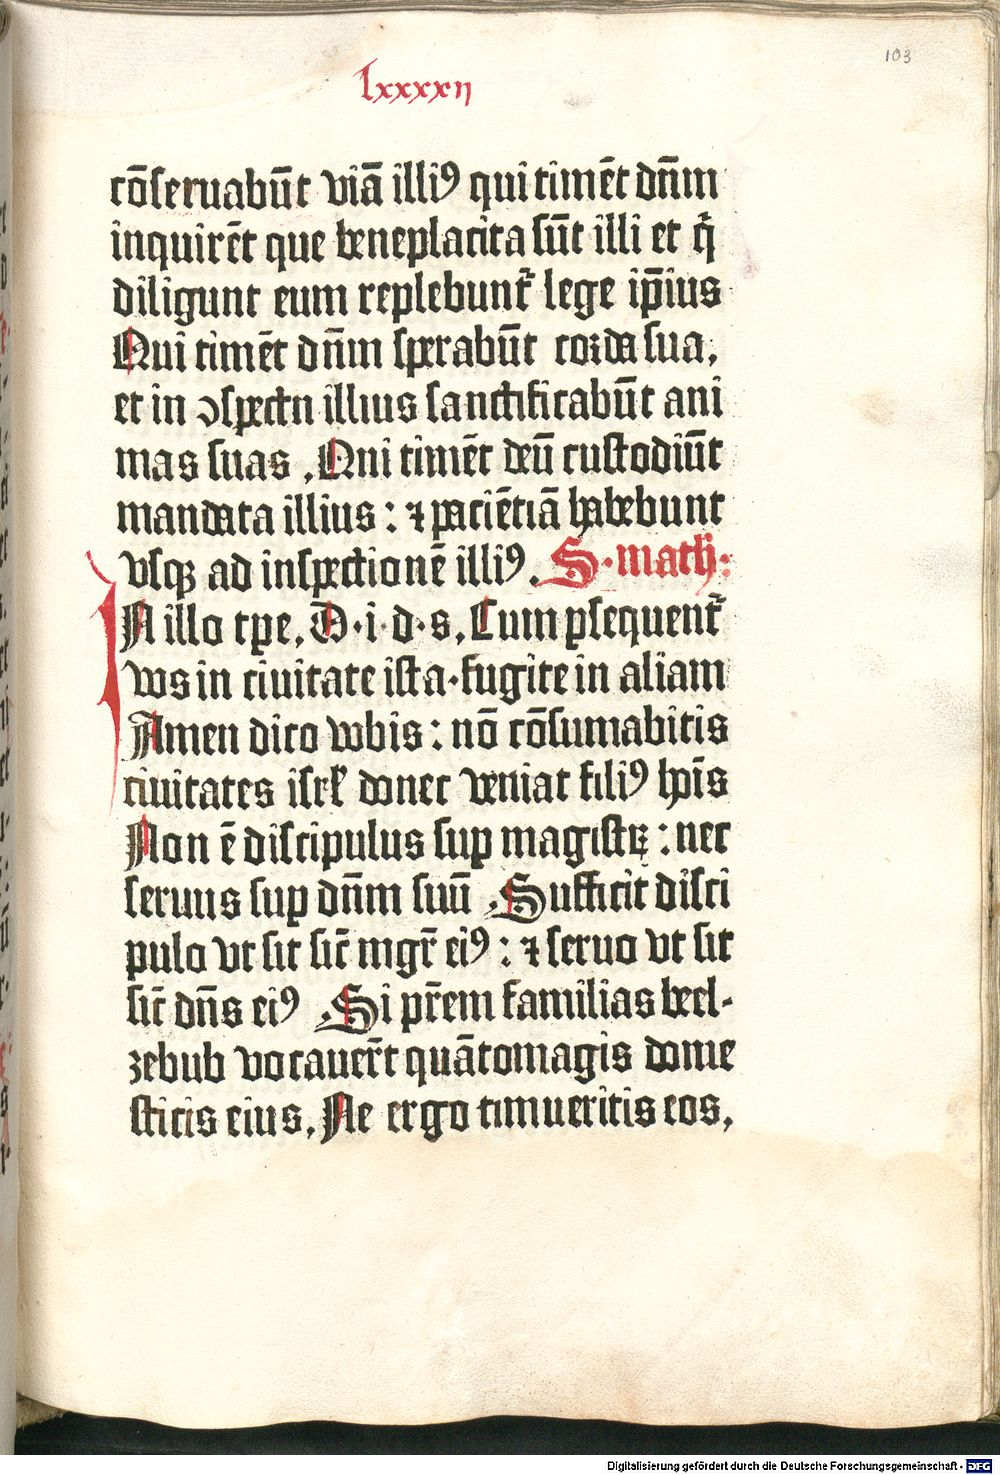 103
lxxxxij
cōseruabūt viā illiꝰ qui timēt dn̄m
inquirēt que beneplacita sūt illi et q̄
diligunt eum replebunt᷑ lege ip̄ius
Qui timēt dn̄m sperabūt corda sua,
et in ꝯspectu illius sanctificabūt ani
mas suas . Qui timēt deū custodiūt
mandata illius : ⁊ paciētiā habebunt
vsqꝫ ad inspectionē illiꝰ. S. math̄:
IN illo tꝑe. D.i.d.s. Cum ꝑsequent᷑
vos in ciuitate ista. fugite in aliam
Amen dico vobis : nō cōsumabitis
ciuitates isrł donec veniat filiꝰ hoīs
Non ē discipulus suꝑ magistꝝ : nec
seruus suꝑ dn̄m suū . Sufficit disci
pulo vt sit sic̄ mgr̄ eiꝰ : ⁊ seruo vt sit
sic̄ dn̄s eiꝰ . Si pr̄em familias beel-
zebub vocauer̄t quātomagis dome
sticis eius. Ne ergo timueritis eos,
Digitalisierung gefördert durch die Deutsche Forschungsgemeinschaft - DFG